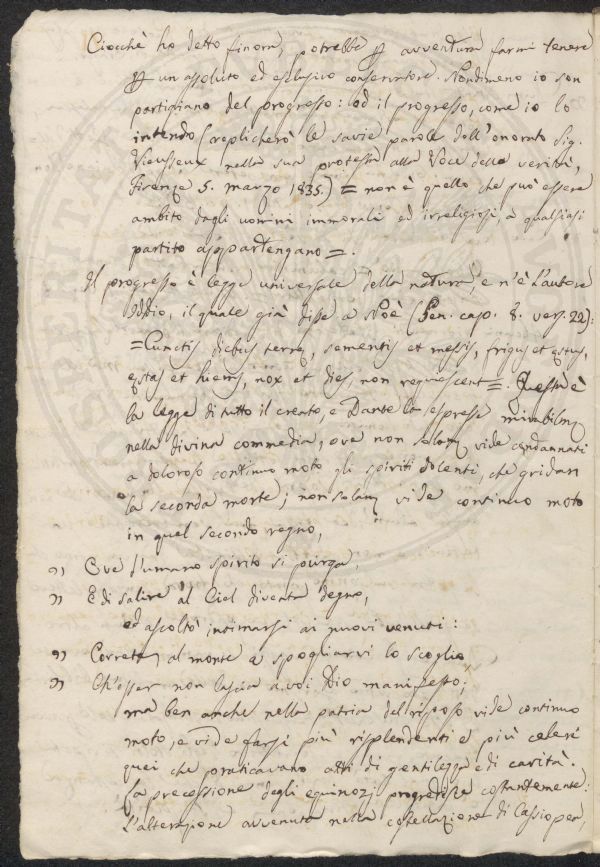 Ciocchè ho detto finora, potrebbe p avventura farmi tenere
p un assoluto ed esclusivo conservatore. Nondimeno io son
partigiano del progresso: ed il progresso, come io lo
intendo (replicherò le savie parole dell'onorato Sig.
Vieusseux nella sua protesta alla Voce della verità,
Firenze 5. marzo 1835.) = non è quello che può essere
ambito dagli uomini immorali ed irreligiosi, a qualsiasi
partito appartengano =.
Il progresso è legge universale della natura, e n'è l'autore
Iddio, il quale già disse a Noè (Gen. cap. 8. vers. 22):
= Cunctis diebus terrę, sementis et messis, frigus et ęstus,
ęstas et hiems, nox et dies, non requiescent =. Questa è
la legge di tutto il creato, e Dante la espresse mirabilm
nella divina commedia, ove non solam vide condannati
a doloroso continuo moto gli spiriti dolenti, che gridan
la seconda morte; non solam vide continuo moto
in quel secondo regno,
" Ove l'umano spirito si purga,
" E di salire al Ciel diventa degno,
ed ascoltò intimarsi ai nuovi venuti:
" Correte al monte a spogliarvi lo scoglio,
" Ch'esser non lascia a voi Dio manifesto;
ma ben anche nella patria del riposo vide continuo
moto, e vide farsi più risplendenti e più celeri
quei che praticavano atti di gentilezza e di carità.
La precessione degli equinozj progredisce costantemente:
L'alterazione avvenuta nella costellazione di Cassiopea,